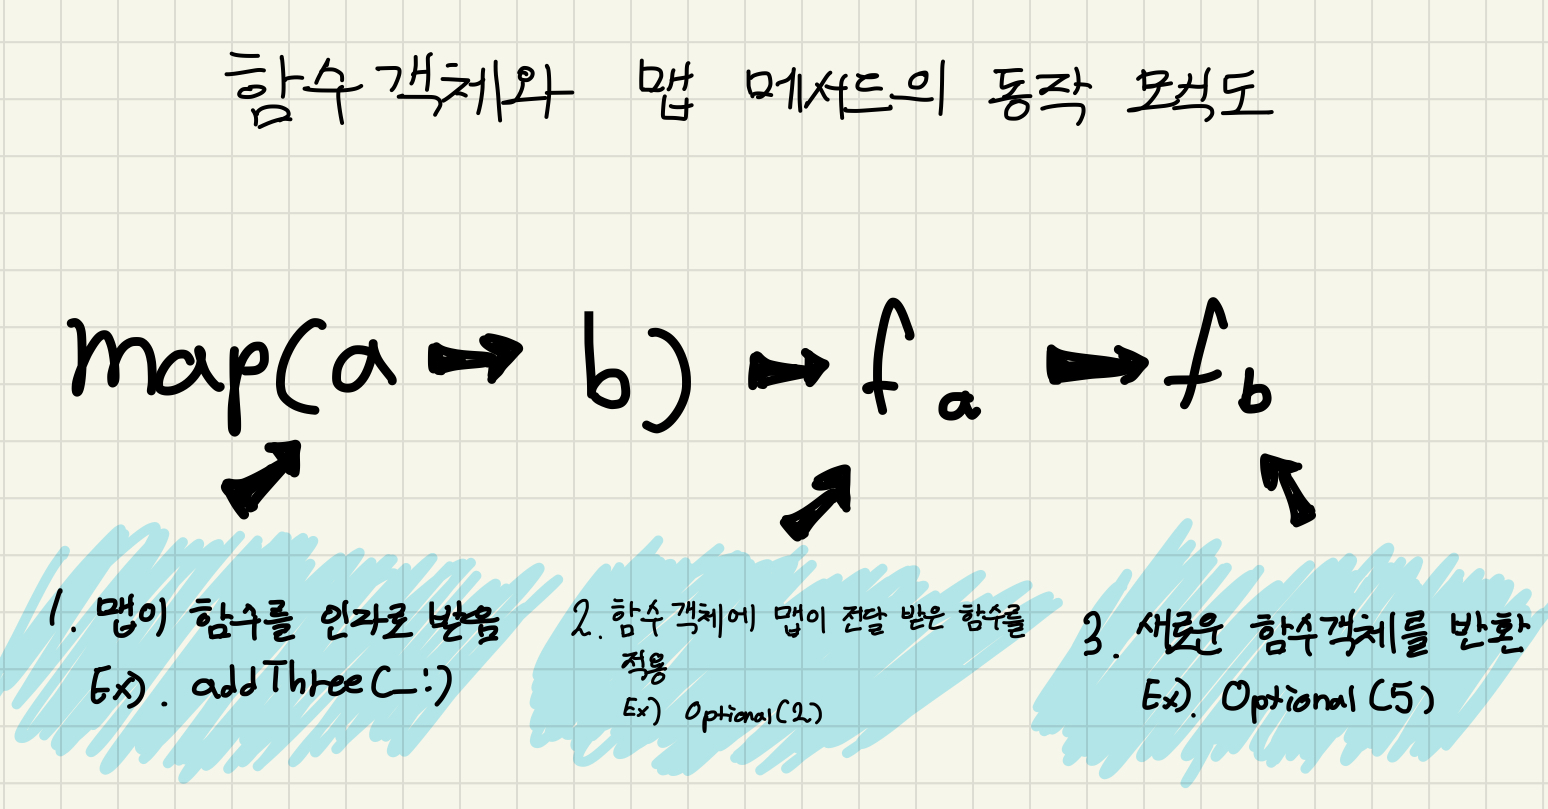 함수객체와 맵 메서드의 동작 모식도
map(a → b) → fa → fb
1. 맵이 함수를 인자로 받음
Ex). addThree(_:)
2. 함수 객체에 맵이 전달 받은 함수를
적용
Ex) Optional(2)
3. 새로운 함수객체를 반환
Ex). Optional(5)